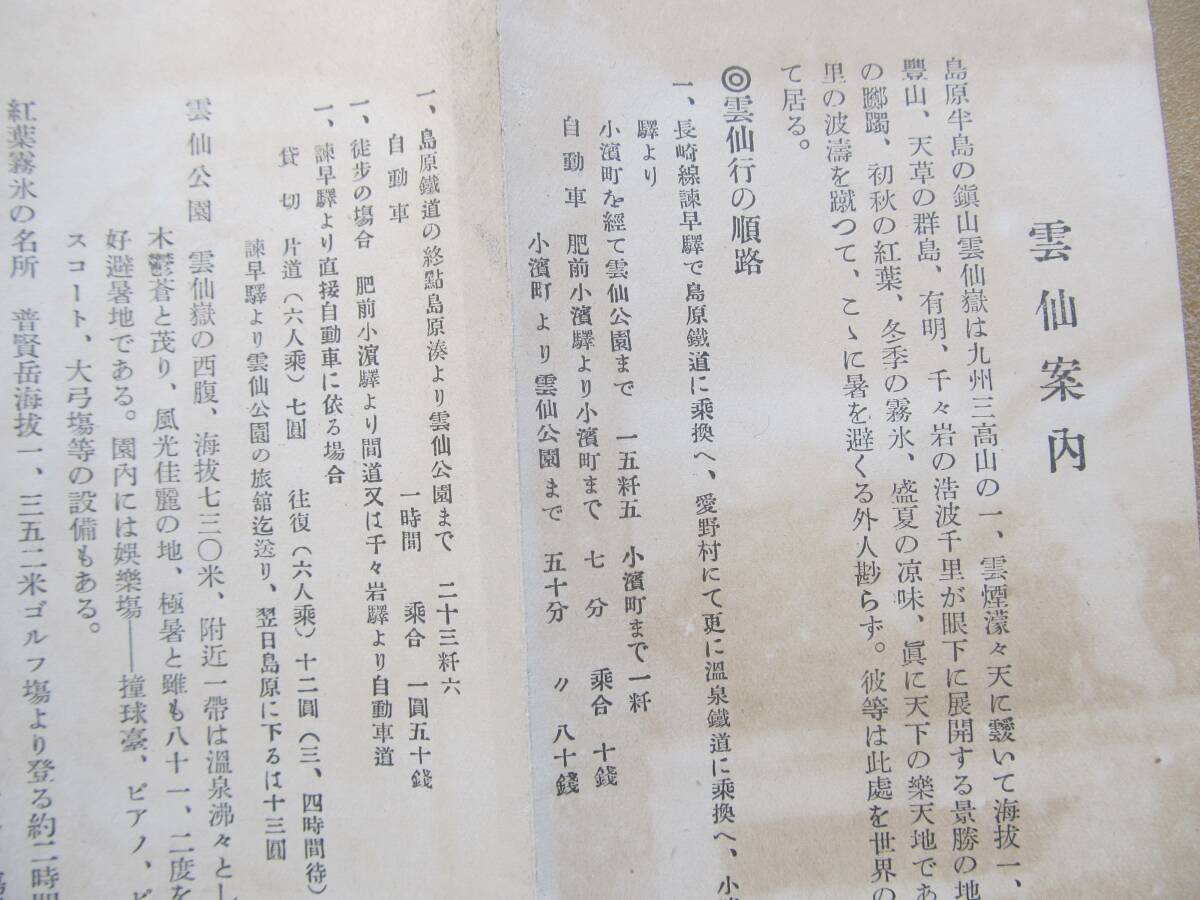 雲仙案內
島原半島の鎭山雲仙嶽は九州三高山の一、雲煙濛々天に靉いて海拔一、
豐山、天草の群島、有明、千々岩の浩波千里が眼下に展開する景勝の地
の躑躅、初秋の紅葉、冬季の霧氷、盛夏の凉味、眞に天下の樂天地であ
里の波濤を蹴つて、こゝに暑を避くる外人尠らず。彼等は此處を世界の
て居る。
◎雲仙行の順路
一、長崎線諫早驛で島原鐵道に乘換へ、愛野村にて更に溫泉鐵道に乘換へ、小
驛より
小濱町を經て雲仙公園まで 一五粁五 小濱町まで一粁
自動車 肥前小濱驛より小濱町まで 七分 乘合 十錢
小濱町より雲仙公園まで 五十分 〃 八十錢
一、島原鐵道の終點島原湊より雲仙公園まで 二十三粁六
自動車 一時間 乘合 一圓五十錢
一、徒步の場合 肥前小濱驛より間道又は千々岩驛より自動車道
一、諫早驛より直接自動車に依る場合
貸切 片道(六人乘)七圓 往復(六人乘)十二圓(三、四時間待)
諫早驛より雲仙公園の旅舘迄送り、翌日島原に下るは十三圓
雲仙公園 雲仙嶽の西腹、海拔七三〇米、附近一帶は溫泉沸々とし
木鬱蒼と茂り、風光佳麗の地、極暑と雖も八十一、二度を
好避暑地である。園內には娛樂場——撞球臺、ピアノ、ビ
スコート、大弓場等の設備もある。
紅葉霧氷の名所 普賢岳海拔一、三五二米ゴルフ場より登る約二時間